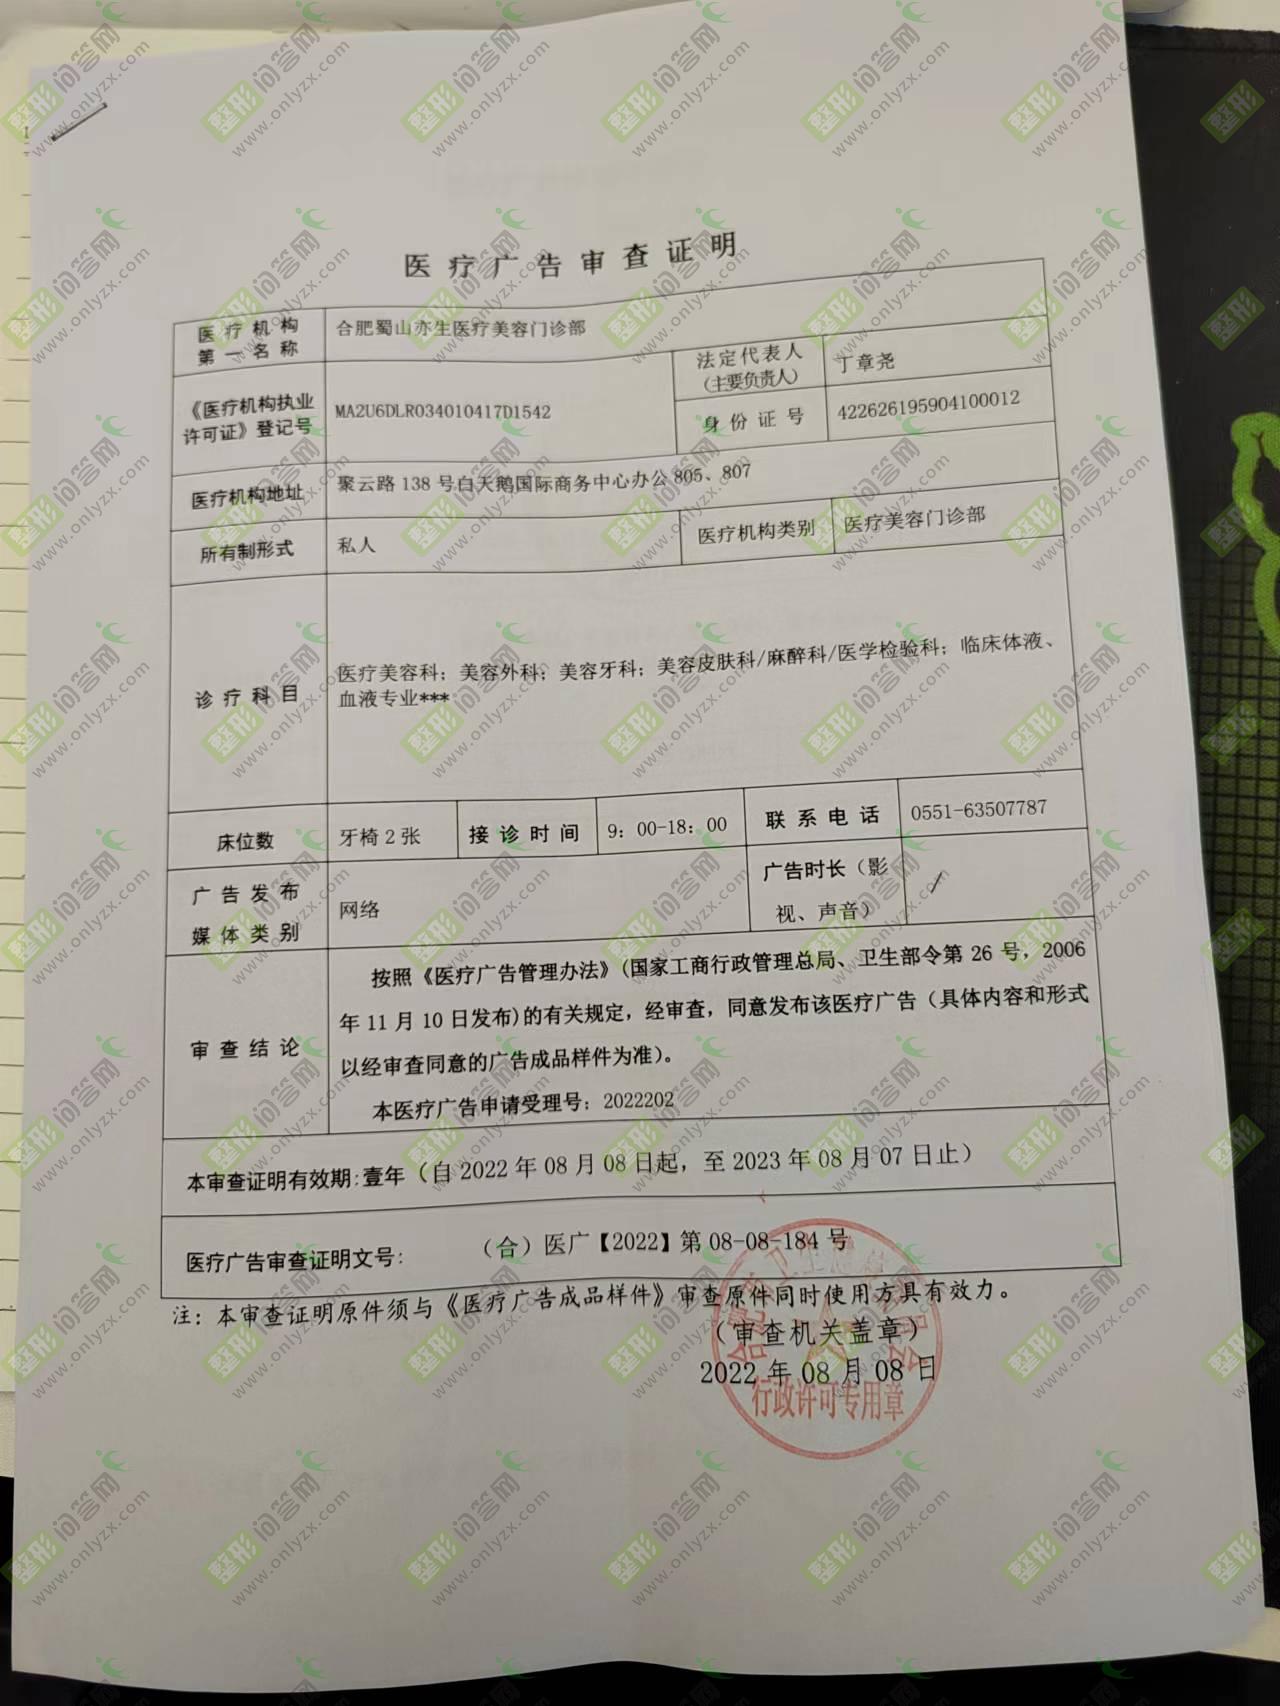 医疗广告审查证明
医疗机构
第一名称
合肥蜀山亦生医疗美容门诊部
《医疗机构执业
许可证》登记号
MA2U6DLR034010417D1542
法定代表人
（主要负责人）
丁章尧
身份证号
422626195904100012
医疗机构地址
聚云路138号白天鹅国际商务中心办公805、807
所有制形式
私人
医疗机构类别
医疗美容门诊部
诊疗科目
医疗美容科；美容外科；美容牙科；美容皮肤科/麻醉科/医学检验科；临床体液、
血液专业***
床位数
牙椅2张
接诊时间
9：00-18：00
联系电话
0551-63507787
广告发布
媒体类别
网络
广告时长（影
视、声音）
/
审查结论
按照《医疗广告管理办法》(国家工商行政管理总局、卫生部令第26号，2006
年11月10日发布)的有关规定，经审查，同意发布该医疗广告（具体内容和形式
以经审查同意的广告成品样件为准）。
本医疗广告申请受理号：2022202
本审查证明有效期：壹年（自2022年08月08日起，至2023年08月07日止）
医疗广告审查证明文号：
（合）医广【2022】第08-08-184号
注：本审查证明原件须与《医疗广告成品样件》审查原件同时使用方具有效力。
（审查机关盖章）
2022年08月08日
行政许可专用章
整形问答网
www.onlyzx.com